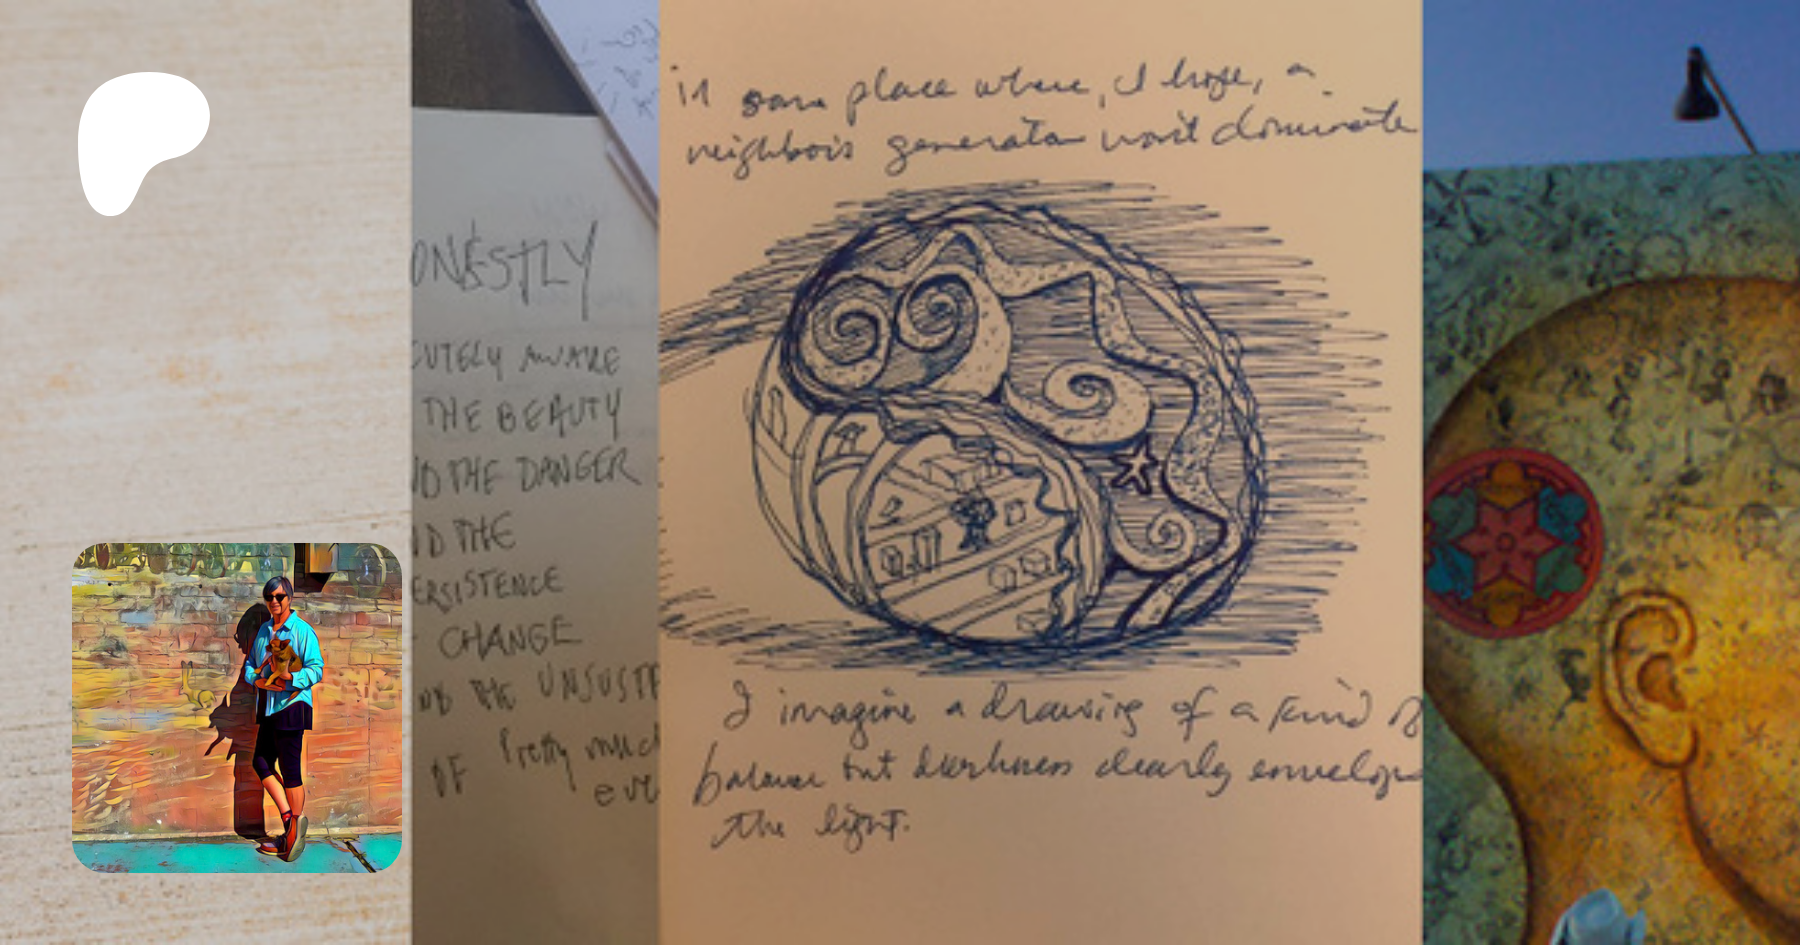 ONESTLY
CUTELY AWARE
THE BEAUTY
ND THE DANGER
ND THE
ERSISTENCE
CHANGE
AND THE UNSUST
OF Pretty much
eve
in some place where, I hope, a
neighbors generator won't dominate
I imagine a drawing of a kind of
balance but darkness clearly envelops
the light.